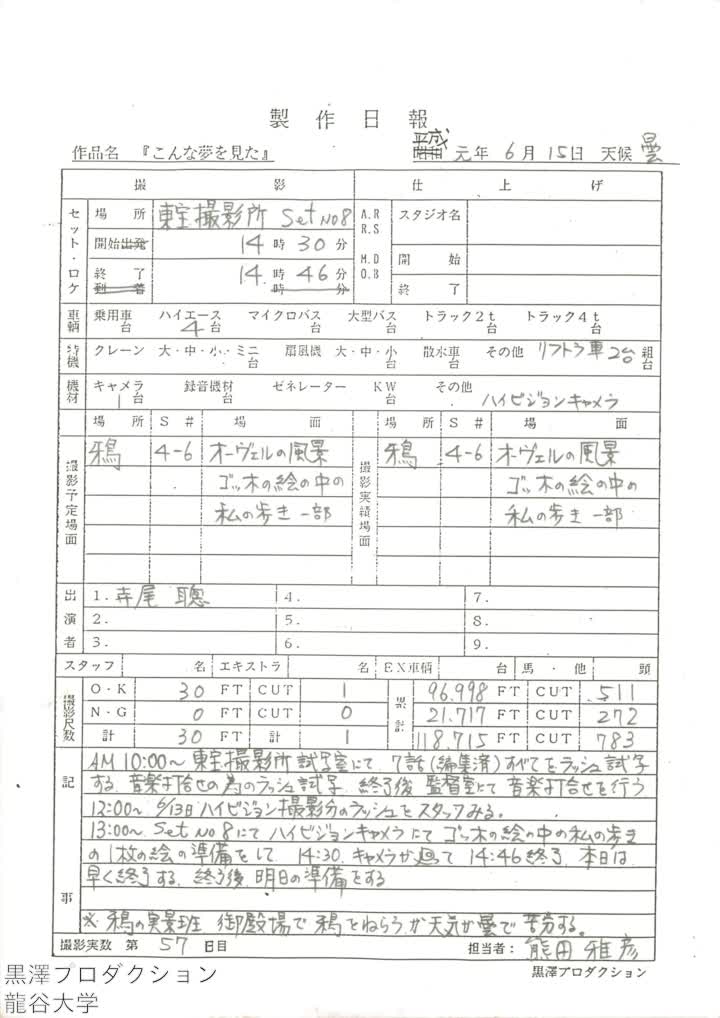 製作日報
作品名 『こんな夢を見た』 平成 元年 6月 15日 天候 曇
撮影 仕上げ
セット・ロケ 場所 東宝撮影所 Set No8 A.R R.S スタジオ名
開始出発 14時30分 M.D O.B 開始
終了 14時46分 終了
到着 時 分
車輌 乗用車 台 ハイエース 4台 マイクロバス 台 大型バス 台 トラック2t 台 トラック4t 台
特機 クレーン 大・中・小・ミニ 台 扇風機 大・中・小 台 散水車 台 その他 リフトラ車 2台 組台
機材 キャメラ 1台 録音機材 ゼネレーター KW 台 その他 ハイビジョンキャメラ
場所 S# 場面 場所 S# 場面
撮影予定場面 鴉 4-6 オーヴェルの風景 撮影実績場面 鴉 4-6 オーヴェルの風景
ゴッホの絵の中の ゴッホの絵の中の
私の歩き 一部 私の歩き 一部
出演者 1. 寺尾 聰 4. 7.
2. 5. 8.
3. 6. 9.
スタッフ 名 エキストラ 名 EX車輌 台 馬・他 頭
撮影尺数 O・K 30 FT CUT 1 累計 96.998 FT CUT 511
N・G 0 FT CUT 0 21.717 FT CUT 272
計 30 FT 計 1 118.715 FT CUT 783
記事
AM 10:00~ 東宝撮影所 試写室にて、7話(編集済)すべてをラッシュ試写
する、音楽打合せの為のラッシュ試写、終了後 監督室にて音楽打合せを行う
12:00~ 6/13日ハイビジョン撮影分のラッシュをスタッフみる。
13:00~ Set No8にてハイビジョンキャメラにて ゴッホの絵の中の私の歩き
の1枚の絵の準備をして、14:30、キャメラが廻って 14:46終了、本日は、
早く終了する、終了後、明日の準備をする
※ 鴉の実景班 御殿場で鴉をねらうが天気が曇で苦労する。
撮影実数 第 57 日目 担当者: 熊田 雅彦
黒澤プロダクション
黒澤プロダクション
龍谷大学